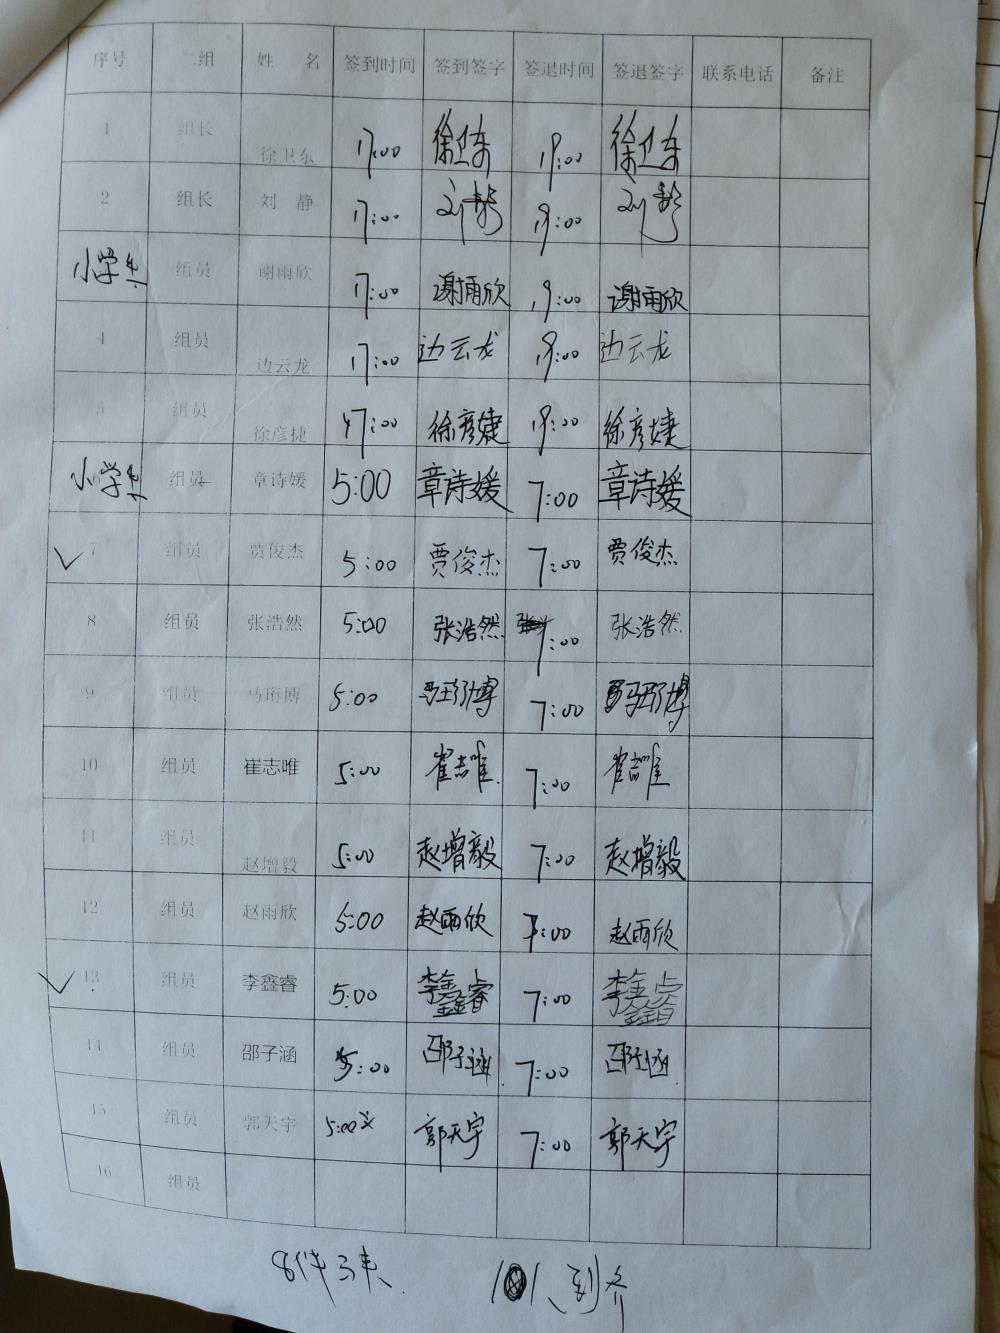 序号 二组 姓 名 签到时间 签到签字 签退时间 签退签字 联系电话 备注
1 组长 徐卫东 17:00 徐卫东 19:00 徐卫东
2 组长 刘 静 17:00 刘静 19:00 刘静
小学生 组员 谢雨欣 17:00 谢雨欣 19:00 谢雨欣
4 组员 边云龙 17:00 边云龙 19:00 边云龙
5 组员 徐彦捷 17:00 徐彦婕 19:00 徐彦婕
小学生 6 组员 章诗媛 5:00 章诗媛 7:00 章诗媛
7 组员 贾俊杰 5:00 贾俊杰 7:00 贾俊杰
8 组员 张浩然 5:00 张浩然 7:00 张浩然
9 组员 马珩博 5:00 马珩博 7:00 马珩博
10 组员 崔志唯 5:00 崔志唯 7:00 崔志唯
11 组员 赵增毅 5:00 赵增毅 7:00 赵增毅
12 组员 赵雨欣 5:00 赵雨欣 7:00 赵雨欣
13 组员 李鑫睿 5:00 李鑫睿 7:00 李鑫睿
14 组员 邵子涵 5:00 邵子涵 7:00 邵子涵
15 组员 郭天宇 5:00 郭天宇 7:00 郭天宇
16 组员
8件 人到齐